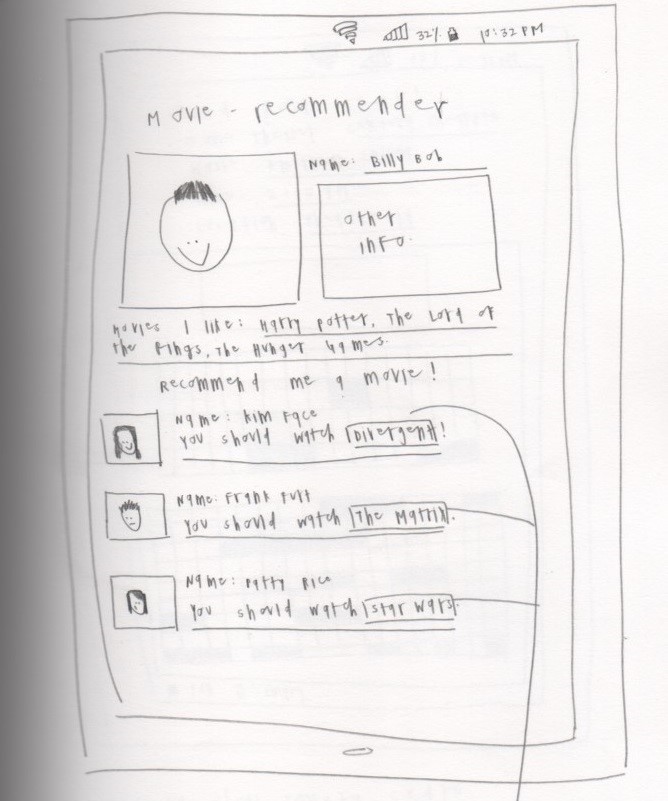 32% 10:32 PM
Movie - recommender
Name: Billy Bob
other
info.
Movies I like: Harry Potter, The Lord of
the Rings, The Hunger Games.
Recommend me a movie!
Name: Kim Face
You should watch Divergent!
Name: Frank
You should watch The Matrix.
Name: Patty Rice
You should watch Star Wars.